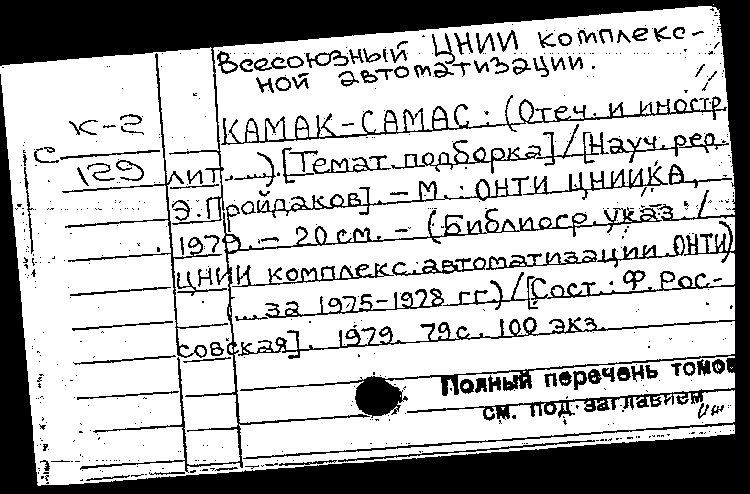 Всесоюзный ЦНИИ комплекс-
ной автоматизации.
К-2
С 129
КАМАК-САМАС: (Отеч. и иностр.
лит. ...). [Темат. подборка] / [Науч. ред.
Э. Пройдаков]. - М.: ОНТИ ЦНИИКА,
1979. - 20 см. - (Библиогр. указ. /
ЦНИИ комплекс. автоматизации. ОНТИ)
(... за 1975-1978 гг.) / [Сост.: Ф. Рос-
совская]. 1979. 79 с. 100 экз.
Полный перечень томов
см. под заглавием